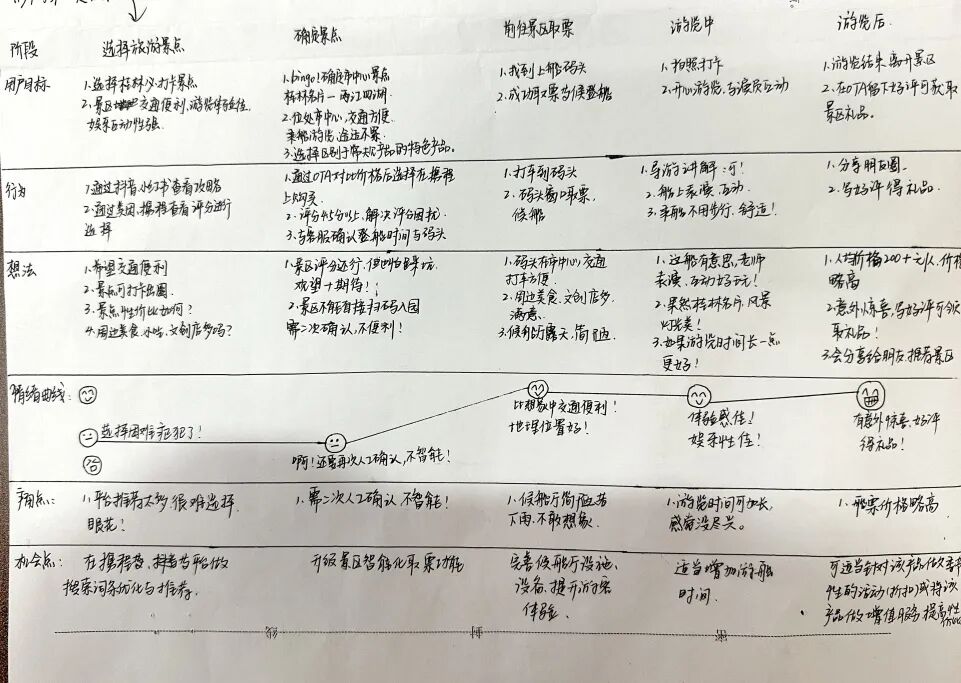 阶段 选择旅游景点 确定景点 前往景区取票 游览中 游览后
用户目标
1.选择桂林必打卡景点
2.景区交通便利、游览体验佳、
娱乐互动性强.
1.bingo!确定市中心景点
桂林名片—两江四湖.
2.位处市中心,交通方便
乘船游览,途远不累.
3.选择区别于常规产品的特色产品。
1.找到上船码头
2.成功取票等候登船
1.拍照打卡
2.开心游览,与演员互动
1.游览结束离开景区
2.在OTA留下好评可获取
景区礼品。
行为
1.通过抖音、小红书查看攻略
2.通过美团、携程查看评分进行
选择
1.通过OTA对比价格后选择在携程
上购买
2.评分4.5分以上,解决评台困扰.
3.与客服确认登船时间与码头
1.打车到码头
2.码头窗口取票,
候船
1.导游讲解:可!
2.船上表演,互动.
3.乘船不用步行,舒适!
1.分享朋友圈.
2.写好评得礼品.
想法
1.希望交通便利
2.景点可打卡出圈.
3.景点性价比如何?
4.周边美食、小吃、文创店多吗?
1.景区评分还行,但
欢呀+期待!
2.景区不能直接扫码入园
需二次确认,不便利!
1.码头在市中心,交通
打车方便.
2.周边美食、文创店多,
满意.
3.候船厅露天,简陋
1.这船有意思,老师
表演、互动好玩!
2.果然桂林名片,风景
灯光美!
3.如果游览时间长一点
更好!
1.人均价格200+元/人,价格
略高
2.意外惊喜,写好评可领
取礼品!
3.会分享给朋友,推荐景区
情绪曲线:
选择困难症犯了!
啊!还需再次人工确认,不智能!
比想象中交通便利!
地理位置好!
体验感佳!
娱乐性佳!
有意外惊喜,好评
得礼品!
痛点:
1.平台推荐太多,很难选择
眼花!
1.需二次人工确认,不智能!
1.候船厅简陋,若
下雨,不敢想象.
1.游览时间可加长,
感觉没尽兴.
1.船票价格略高
机会点:
在携程等、抖音等平台做
搜索词条优化与推荐.
升级景区智能化取票功能
完善候船厅设施、
设备、提升游客
体验。
适当增加游船
时间.
可适当针对该产品做季
性的活动(折扣)或将该
产品做增值服务,提高性